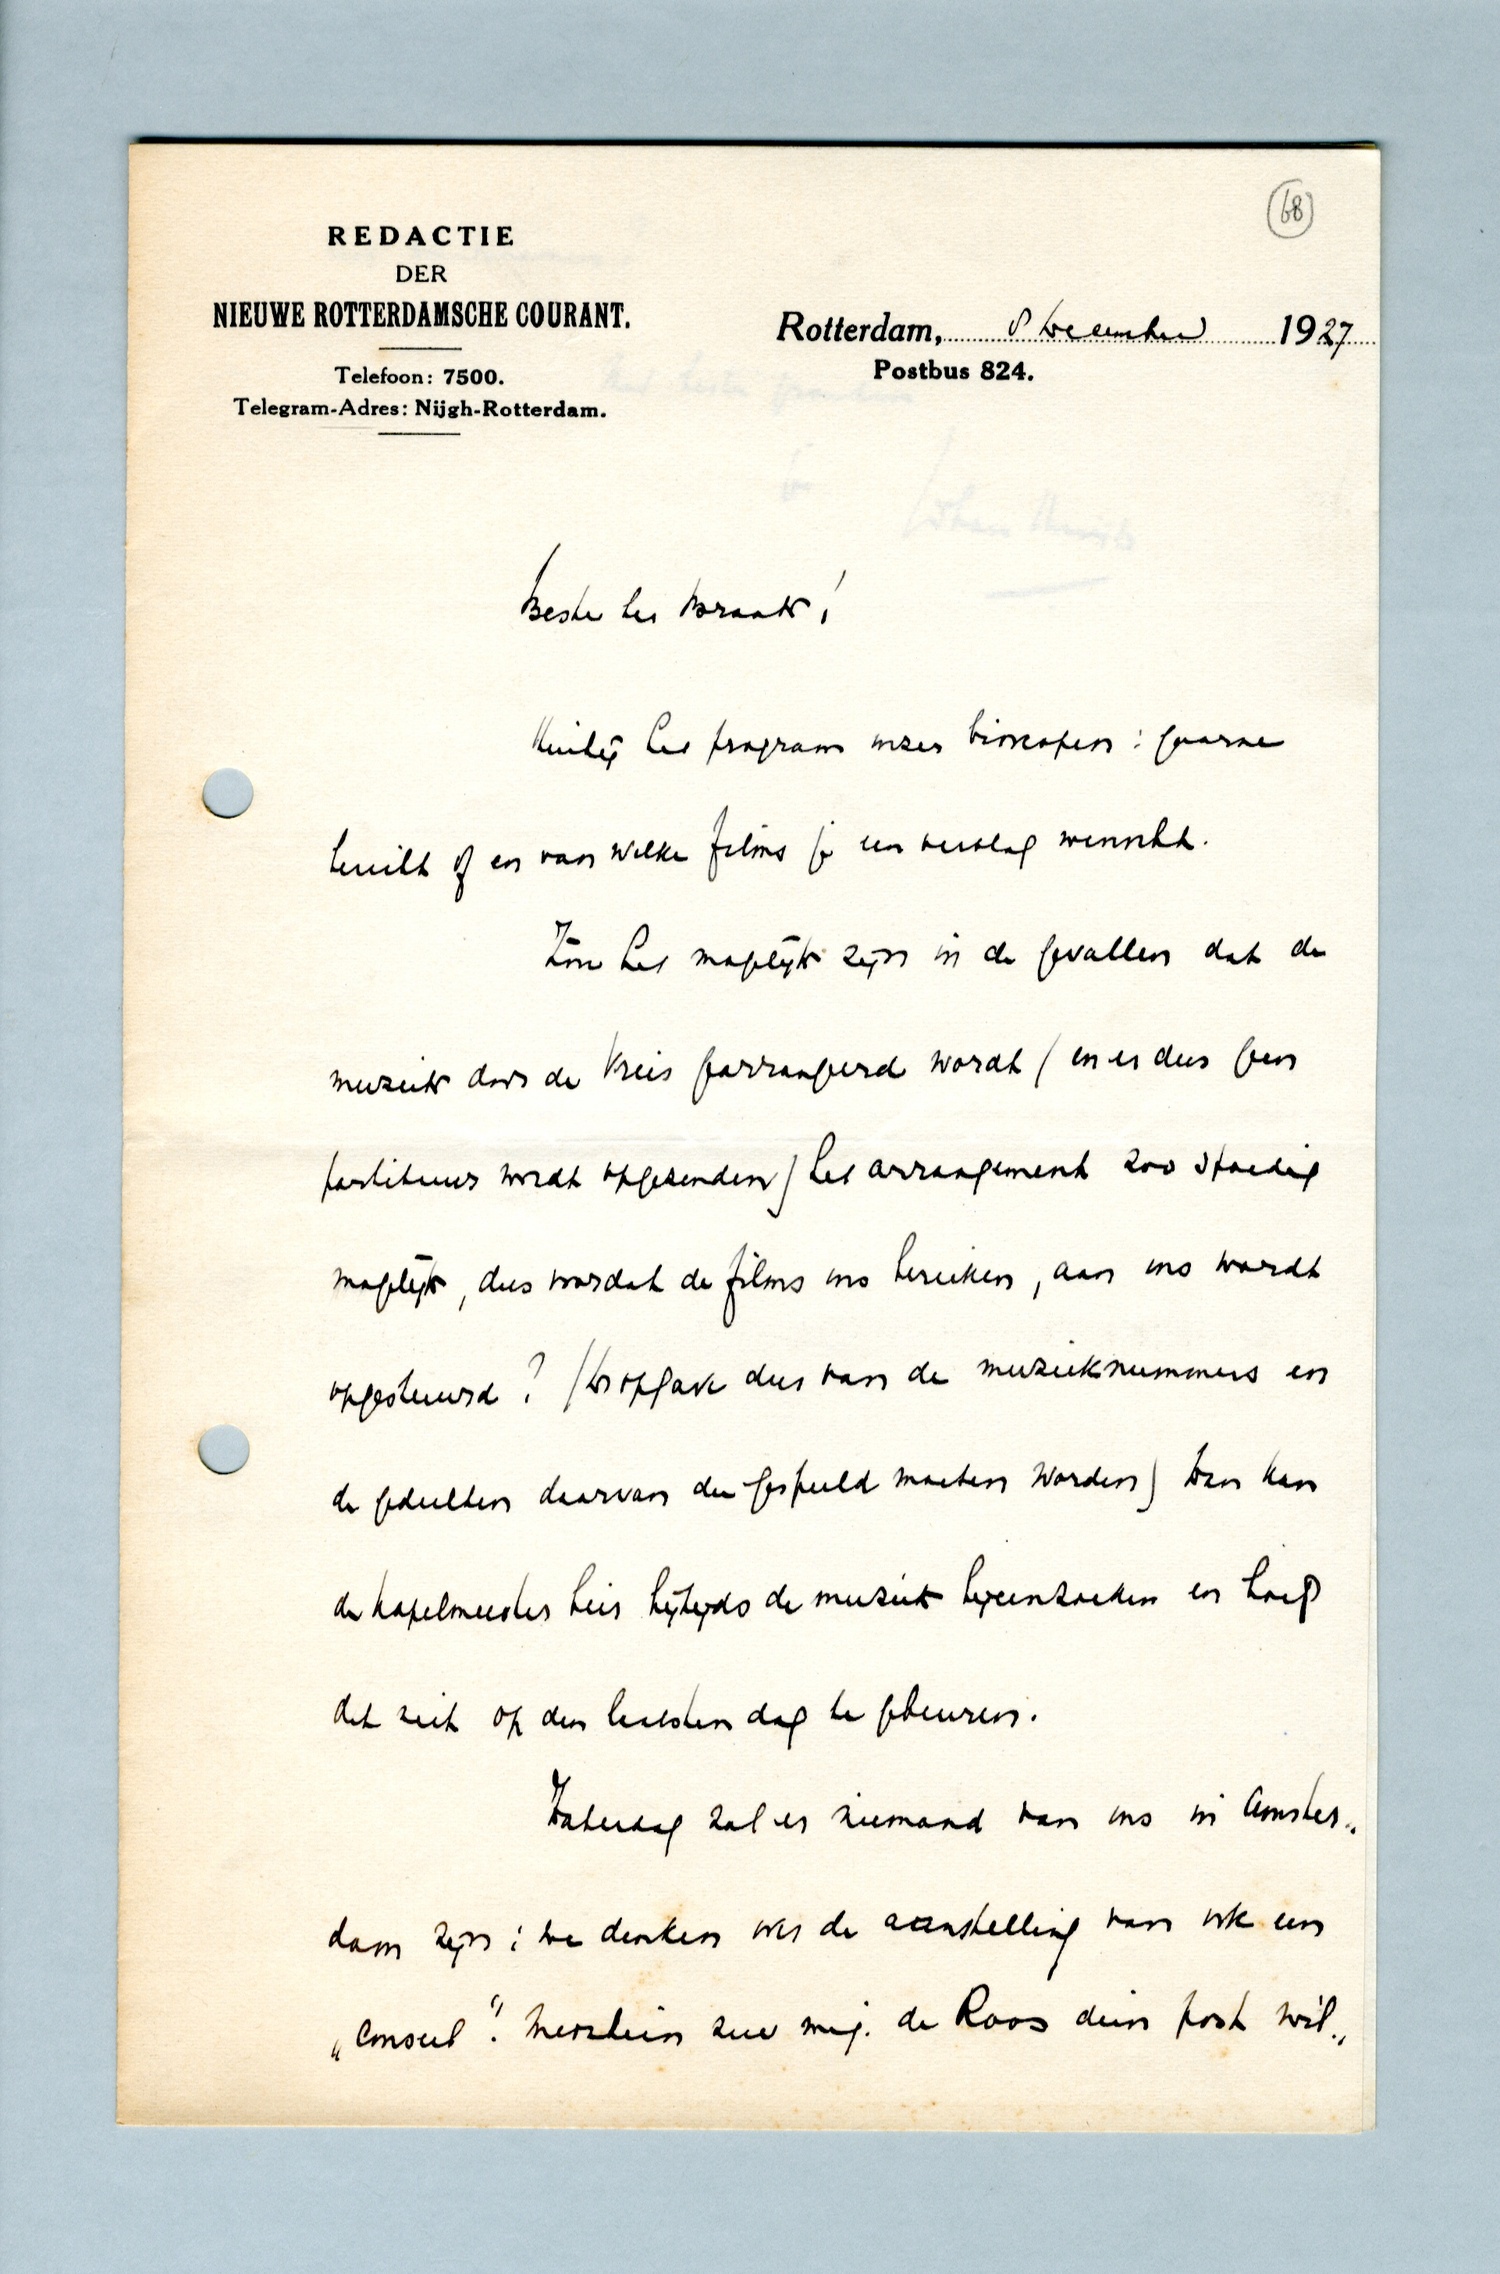 68
REDACTIE
DER
NIEUWE ROTTERDAMSCHE COURANT.
Telefoon: 7500.
Telegram-Adres: Nijgh-Rotterdam.
Rotterdam, 8 December 1927
Postbus 824.
Beste ter Braak!
Hierbij het program onzer bioscopen: gaarne
bericht of en van welke films je een verslag wenscht.
Zou het mogelijk zijn in de gevallen dat de
muziek door de Vries gearrangeerd wordt (en er dus geen
partituur wordt opgezonden) het arrangement zoo spoedig
mogelijk, dus voordat de films ons bereiken, aan ons wordt
opgestuurd? (De opgave dus van de muzieknummers en
de gedeelten daarvan die gespeeld moeten worden) Dan kan
de kapelmeester hier bijtijds de muziek bijeenzoeken en hoeft
dit niet op den laatsten dag te gebeuren.
Zaterdag zal er niemand van ons in Amster„
dam zijn; we denken over de aanstelling van ook een
„consul". Misschien zou mej. de Roos dien post wil„